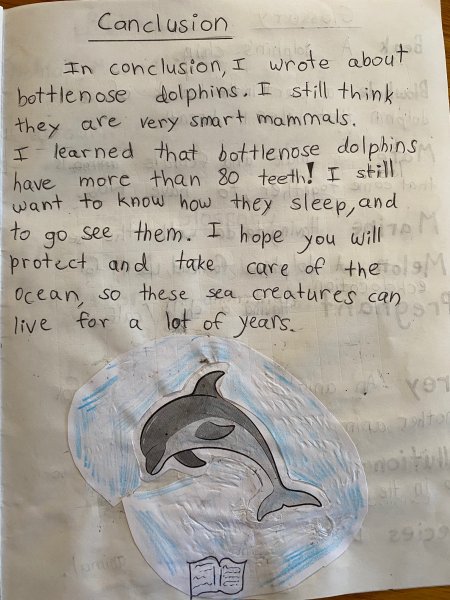 Canclusion
In conclusion, I wrote about
bottlenose dolphins. I still think
they are very smart mammals.
I learned that bottlenose dolphins
have more than 80 teeth! I still
want to know how they sleep, and
to go see them. I hope you will
protect and take care of the
ocean, so these sea creatures can
live for a lot of years.